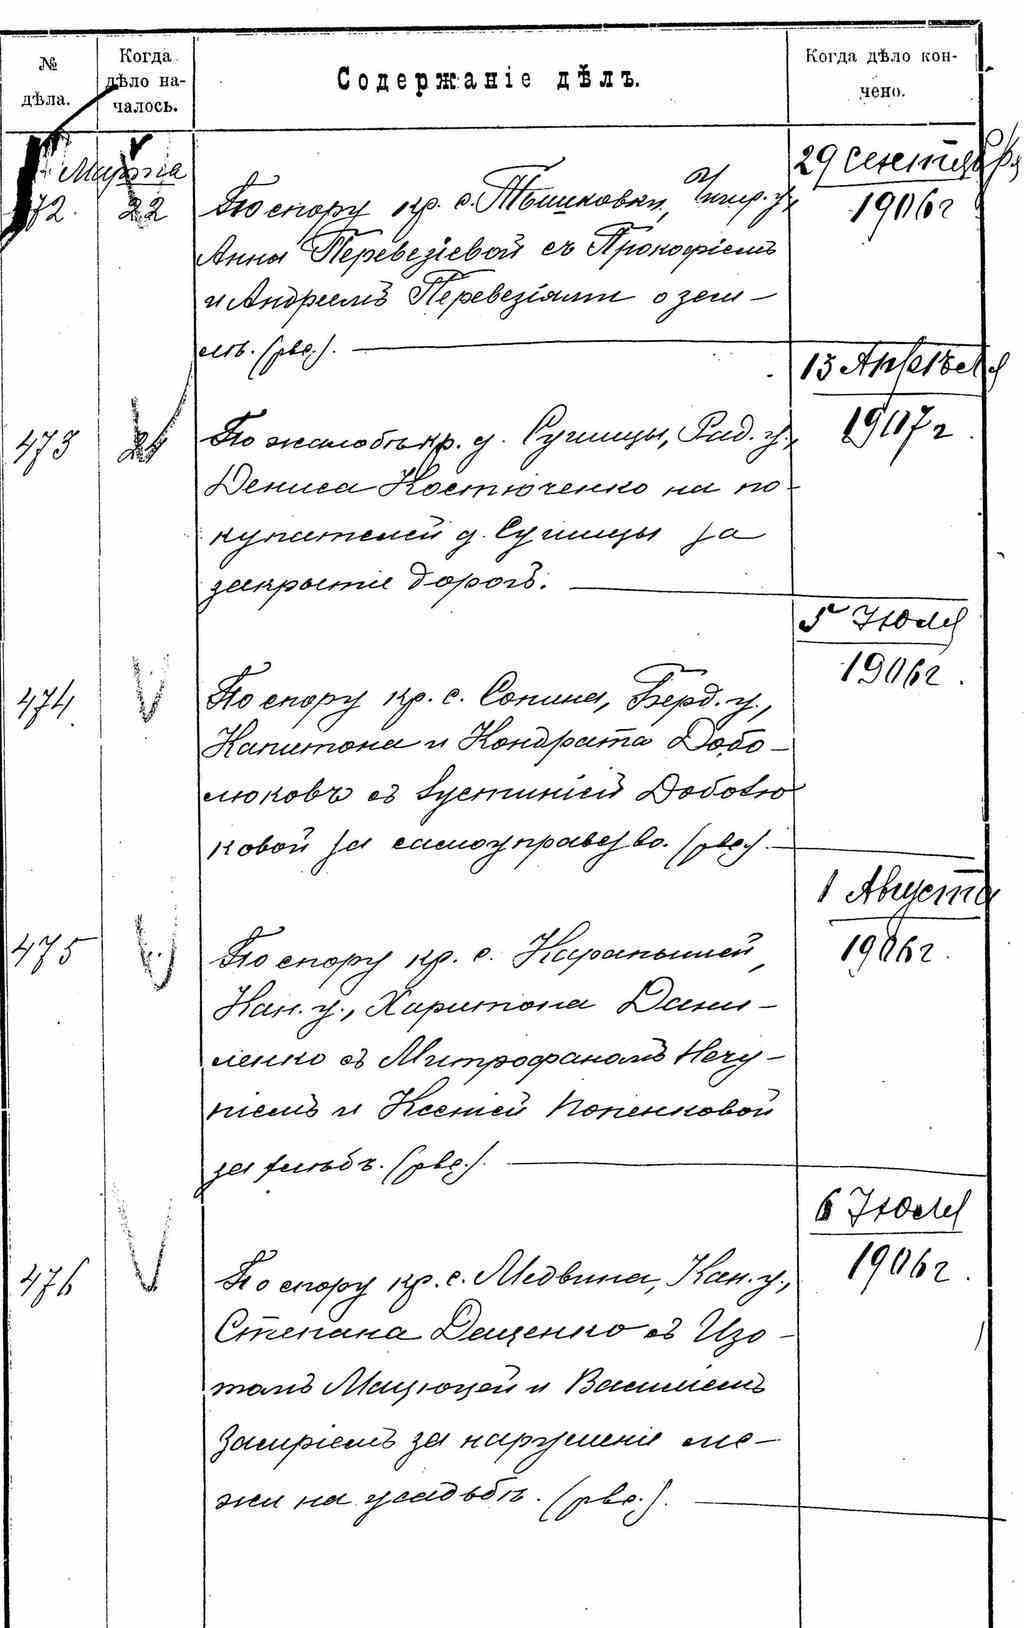 № дѣла.
Когда дѣло началось.
Содержаніе дѣлъ.
Когда дѣло кончено.
Марта
472. 22
По спору кр. с. Тышковки, Чигир. у.,
Анны Перевезіевой съ Прокофіемъ
и Андреемъ Перевезіями о зем-
лѣ. (рвс.).
29 Сентября
1906 г
473 24
По жалобѣ кр. д. Сущицы, Рад. у.,
Дениса Костюченко на по-
купателей д. Сущицы за
закрытіе дорогъ.
13 Апрѣля
1907 г
474
По спору кр. с. Сопина, Берд. у.,
Капитона и Кондрата Добо-
люковъ съ Іустиніей Доболю
ковой за самоуправство. (рвс.).
5 Іюля
1906 г.
475
По спору кр. с. Карапышей,
Кан. у., Харитона Дани-
ленко съ Митрофаномъ Нечу-
піемъ и Ксеніей Попенковой
за хлѣбъ. (рвс.).
1 Августа
1906 г.
476
По спору кр. с. Медвина, Кан. у.,
Степана Даценко съ Изо-
томъ Мацюцей и Василіемъ
Замріемъ за нарушеніе ме-
жи на усадьбѣ. (рвс.).
6 Іюля
1906 г.